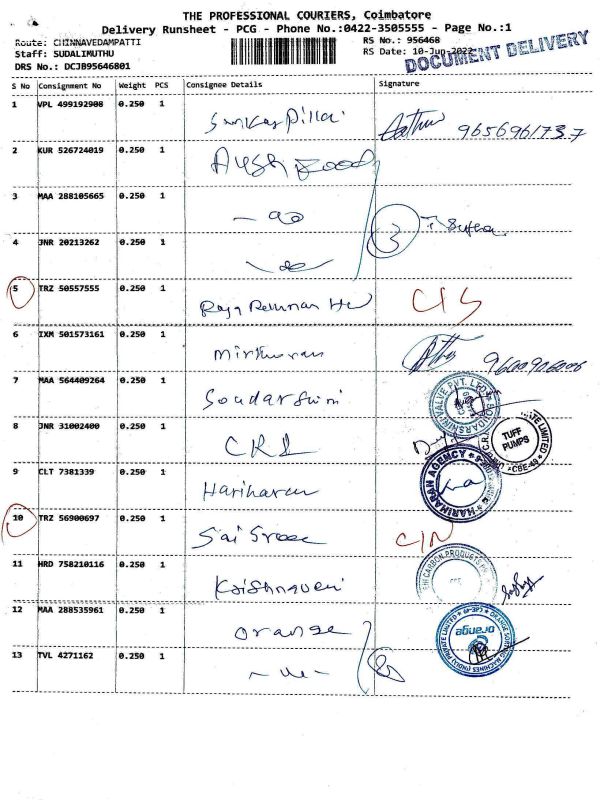 THE PROFESSIONAL COURIERS, Coimbatore
Delivery Runsheet - PCG - Phone No.:0422-3505555 - Page No.:1
Route: CHINNAVEDAMPATTI
RS No.: 956468
Staff: SUDALIMUTHU
RS Date: 10-Jun-2022
DOCUMENT DELIVERY
DRS No.: DCJB95646801
S No Consignment No Weight PCS Consignee Details Signature
1 VPL 499192908 0.250 1 9656961737
2 KUR 526724019 0.250 1 Food
3 MAA 288105665 0.250 1 - do
3
4 JNR 20213262 0.250 1 - do
5 TRZ 50557555 0.250 1 Raja
6 IXM 501573161 0.250 1 9600906006
7 MAA 564409264 0.250 1 Soudarshini
8 JNR 31002400 0.250 1 CRI
TUFF
PUMPS
CBE-49
9 CLT 7381339 0.250 1 Hariharan
HARIHARAN AGENCY
10 TRZ 56900697 0.250 1 Sai Sree CIN
11 HRD 758210116 0.250 1 Krishnaveni
CARBON PRODUCTS
12 MAA 288535961 0.250 1 Orange
orange
ORANGE SORTING MACHINES (INDIA) PRIVATE LIMITED
13 TVL 4271162 0.250 1